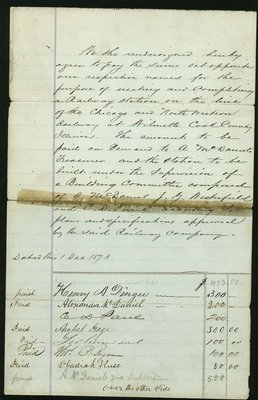 We the undersigned hereby
agree to pay the sums set opposite
our respective names for the
purpose of erecting and Completing
a Railway station on the line
of the Chicago and North Western
Railway at Wilmette Cook County
Illinois. The amounts to be
paid on Demand to A McDaniel
Treasurer and the station to be
built under the Supervision of
a Building Committee composed
of A McDaniel
plans and specifications approved
by the said Railway Company.
Dated this 1 Dec 1873.
paid Henry A Dingee 300 00
Paid Alexander McDaniel 200 00
500
Paid Asahel Gage 300 00
100 00
Paid 100 00
Paid Obadiah Huse 50 00
paid A McDaniels 2nd Subscription 500
over Mother Side